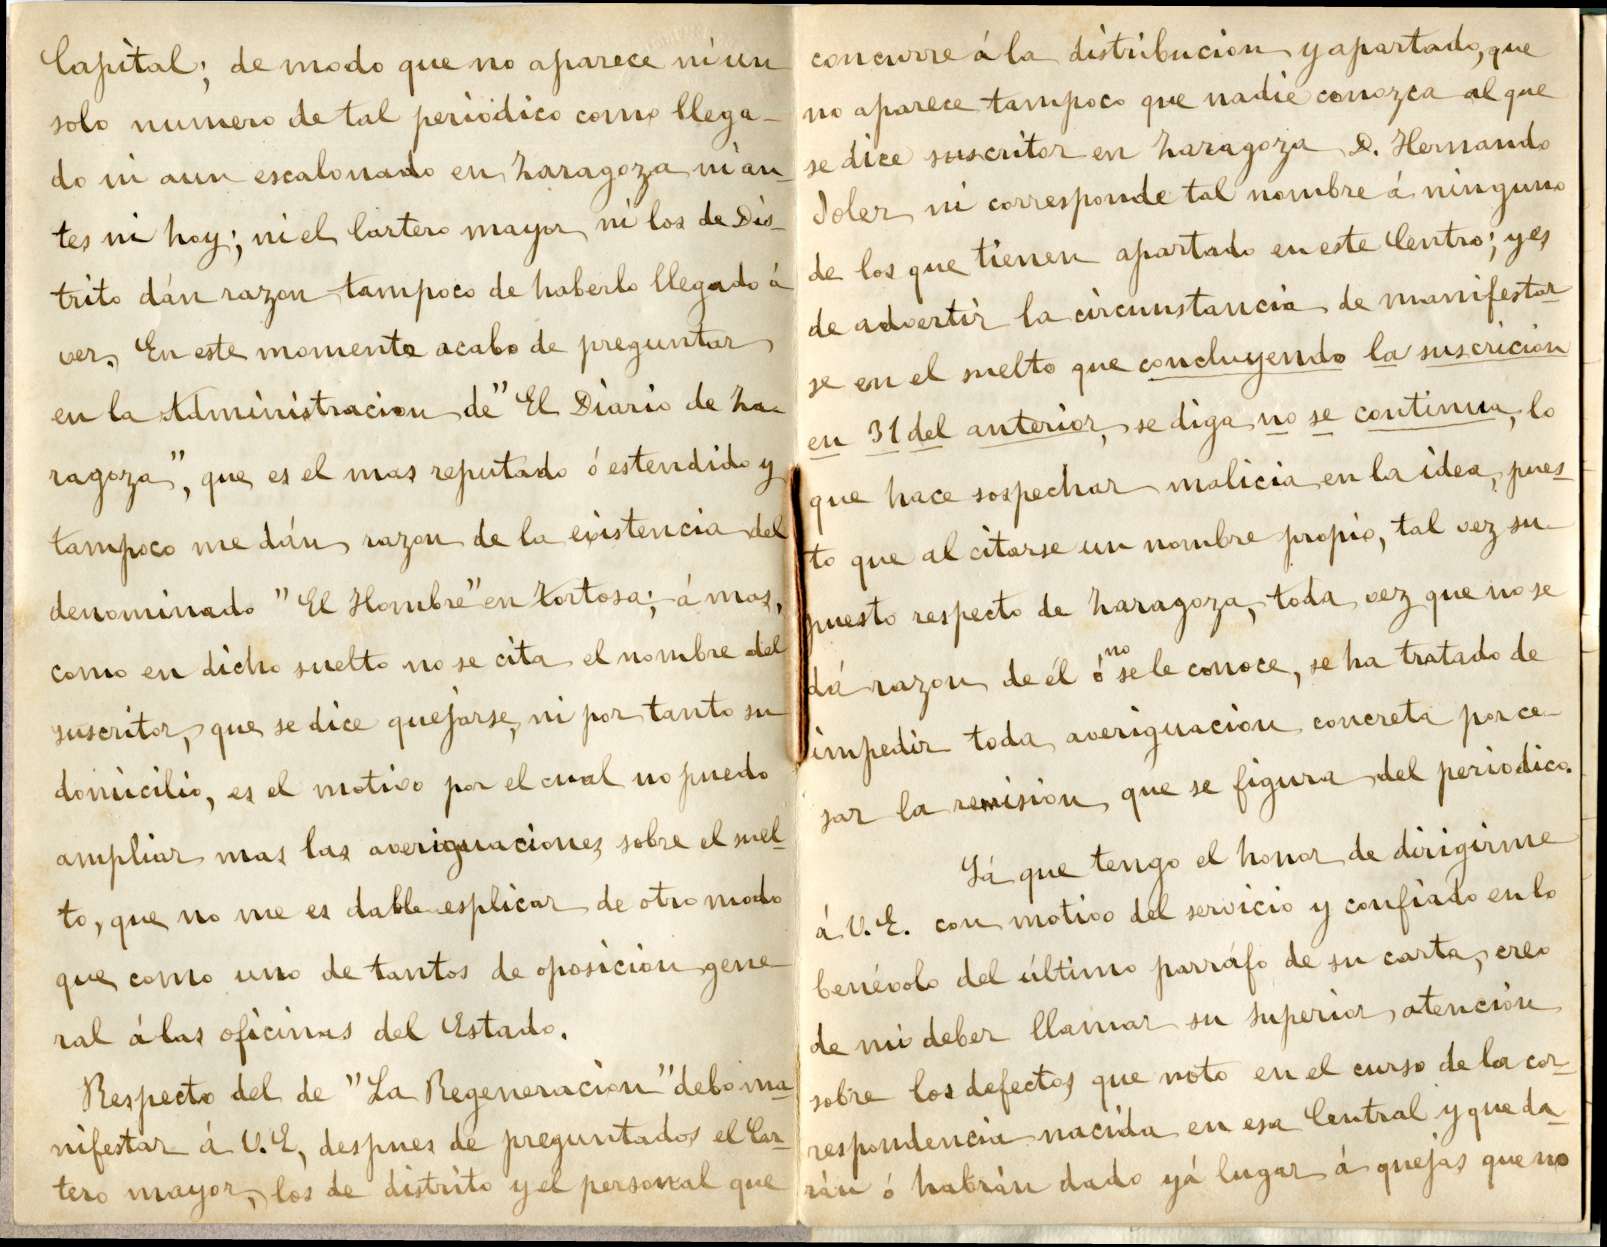 Capital; de modo que no aparece ni un
solo numero de tal periódico como llega-
do ni aun escalonado en Zaragoza ni an-
tes ni hoy; ni el Cartero mayor ni los de Dis-
trito dán razon tampoco de haberlo llegado á
ver. En este momento acabo de preguntar
en la Administracion de "El Diario de Za-
ragoza", que es el mas reputado ó estendido y
tampoco me dán razon de la existencia del
denominado "El Hombre" en Tortosa; á mas,
como en dicho suelto no se cita el nombre del
suscritor, que se dice quejarse, ni por tanto su
domicilio, es el motivo por el cual no puedo
ampliar mas las averiguaciones sobre el suel-
to, que no me es dable esplicar de otro modo
que como uno de tantos de oposicion gene-
ral á las oficinas del Estado.
Respecto del de "La Regeneracion" debo ma-
nifestar á V.E, despues de preguntados el Car-
tero mayor, los de distrito y el personal que
concurre á la distribucion y apartado, que
no aparece tampoco que nadie conozca al que
se dice suscritor en Zaragoza D. Hernando
Soler ni corresponde tal nombre á ninguno
de los que tienen apartado en este Centro; y es
de advertir la circunstancia de manifestar-
se en el suelto que concluyendo la suscricion
en 31 del anterior, se diga no se continua, lo
que hace sospechar malicia en la idea, pues-
to que al citarse un nombre propio, tal vez su-
puesto respecto de Zaragoza, toda vez que no se
dá razon de él ó no se le conoce, se ha tratado de
impedir toda averiguacion concreta por ce-
sar la remision que se figura del periodico.
Yá que tengo el honor de dirigirme
á V.E. con motivo del servicio y confiado en lo
benévolo del último parráfo de su carta, creo
de mi deber llamar su superior atención
sobre los defectos que noto en el curso de la cor-
respondencia nacida en esa Central y que da-
rán ó habrán dado yá lugar á quejas que no